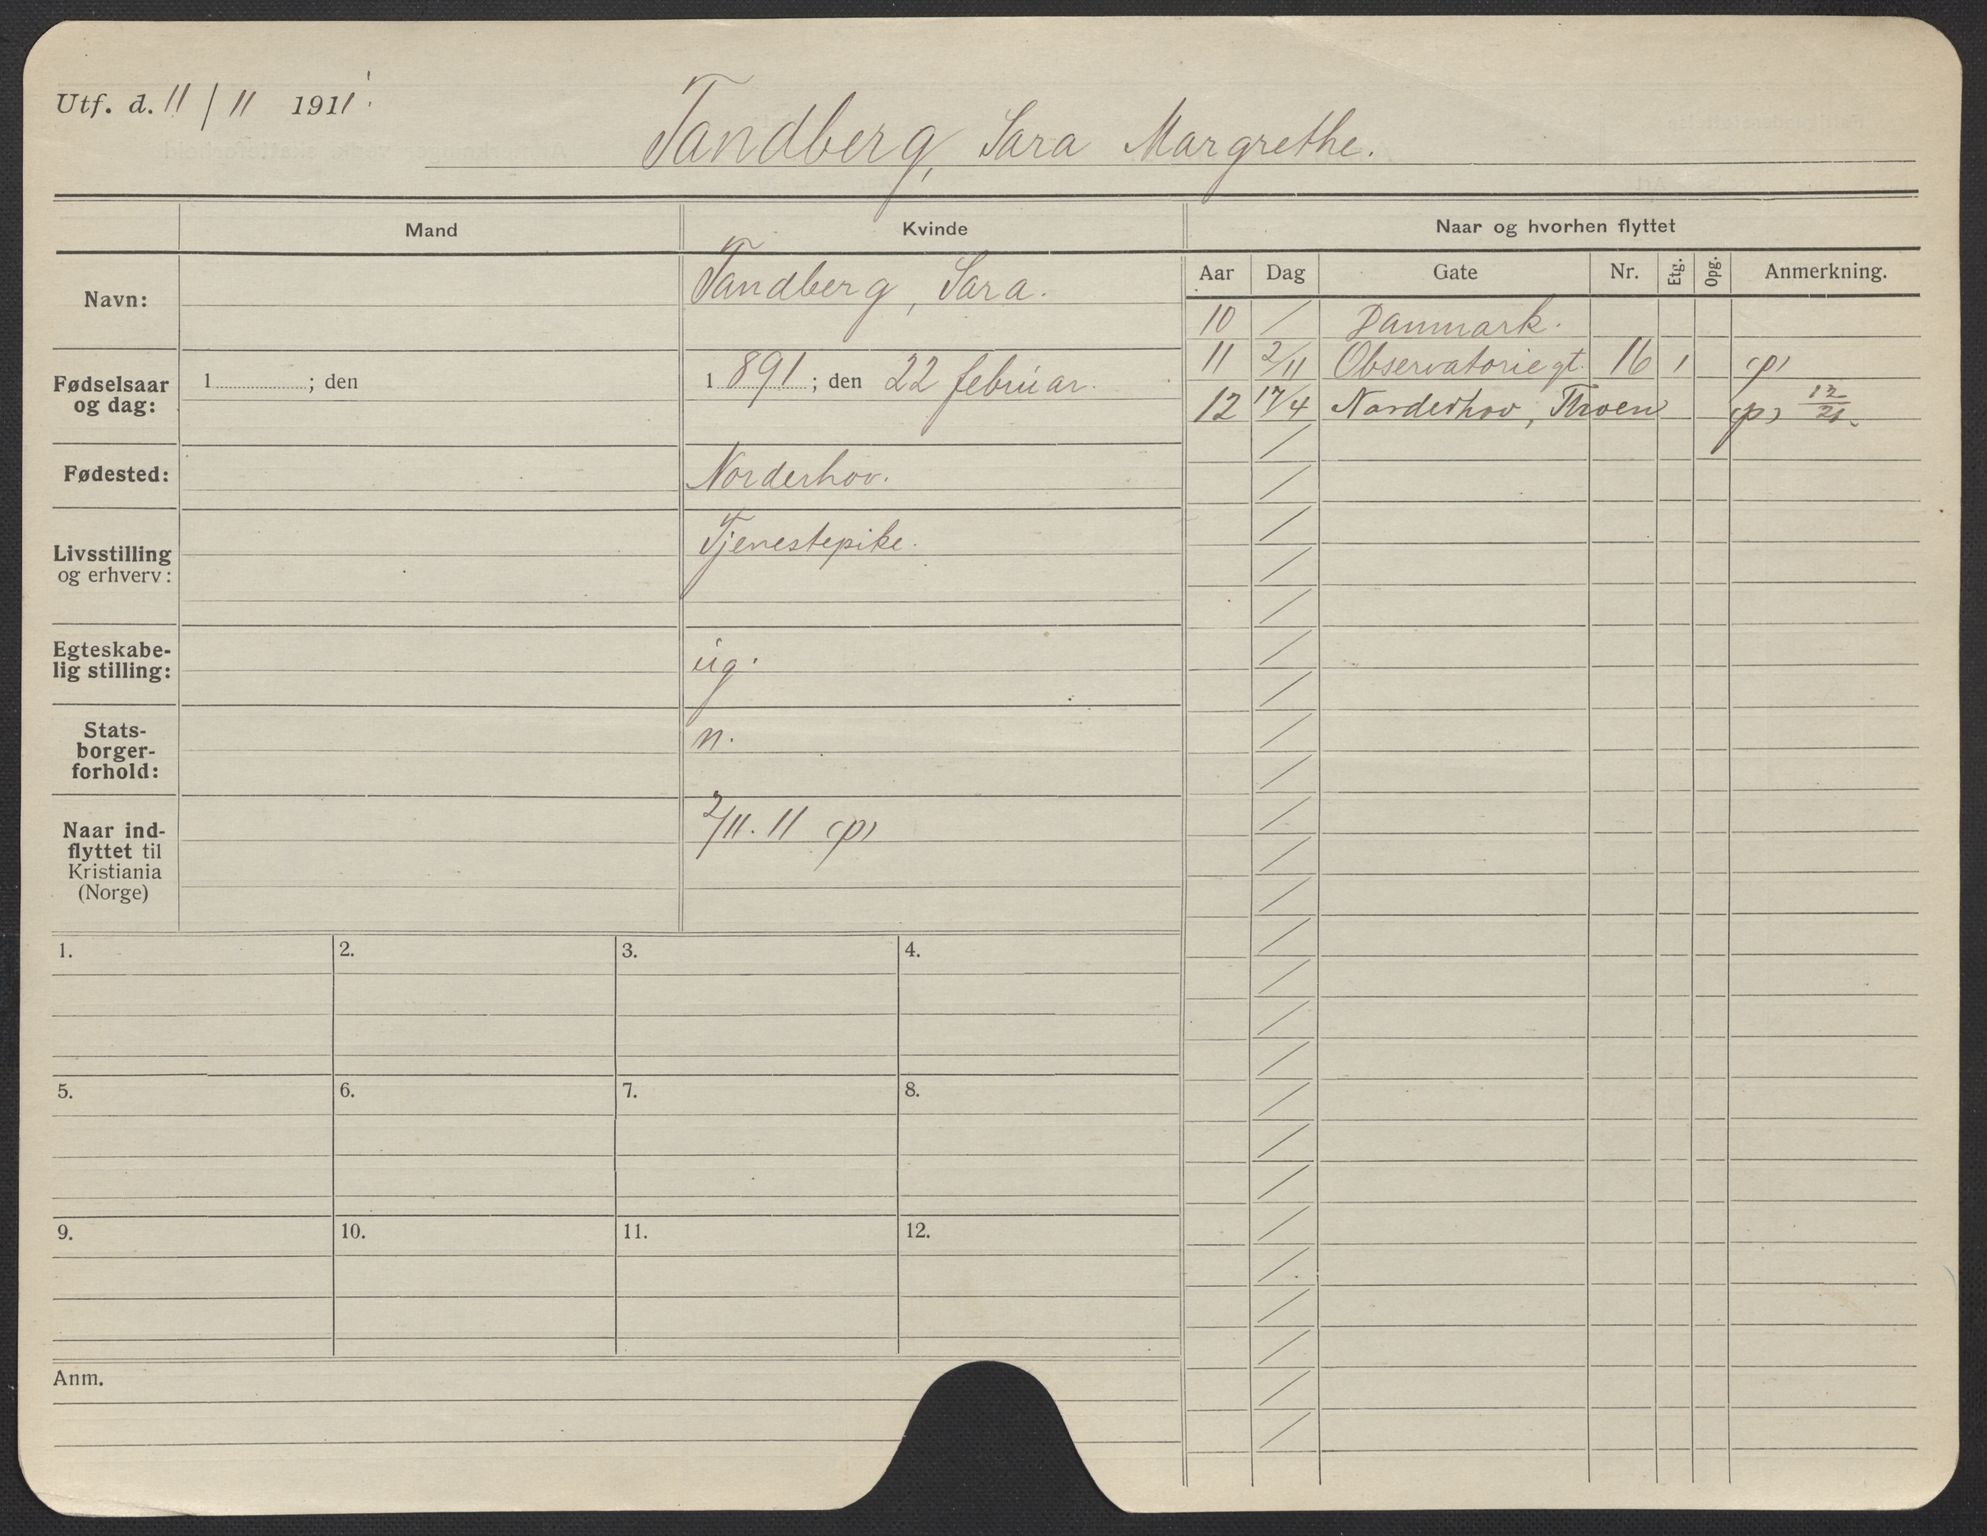 Utf. d. 11 / 11 1911.
Tandberg, Sara Margrethe.
Mand
Kvinde
Navn:
Tandberg, Sara.
Fødselsaar og dag:
1 ; den
1 891 ; den 22 februar.
Fødested:
Norderhov.
Livsstilling og erhverv:
Tjenestepike.
Egteskabe-
lig stilling:
ug.
Stats-
borger-
forhold:
n.
Naar ind-
flyttet til
Kristiania
(Norge)
2/11. 11 (p)
Naar og hvorhen flyttet
Aar Dag Gate Nr. Etg. Opg. Anmerkning.
10 / Danmark.
11 2/11 Observatoriegt. 16 1 (p)
12 17/4 Norderhov, Thoen (p) 12/21.
1. 2. 3. 4.
5. 6. 7. 8.
9. 10. 11. 12.
Anm.